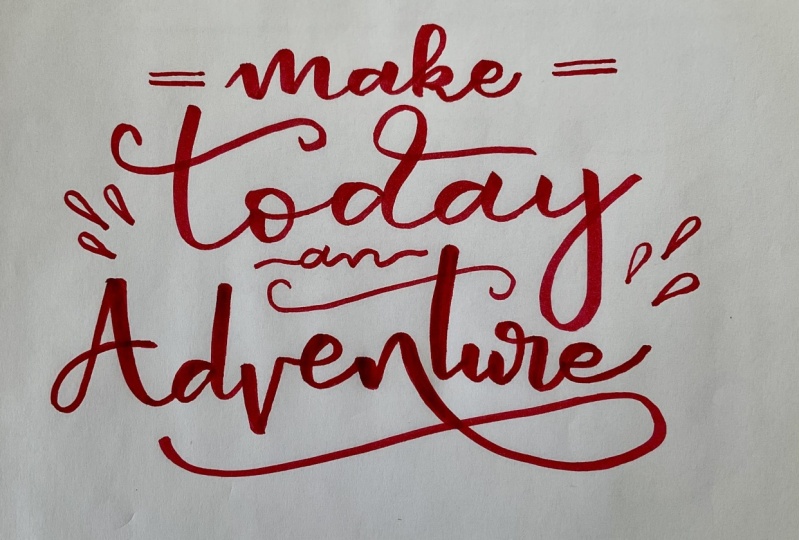 make
today
an
Adventure